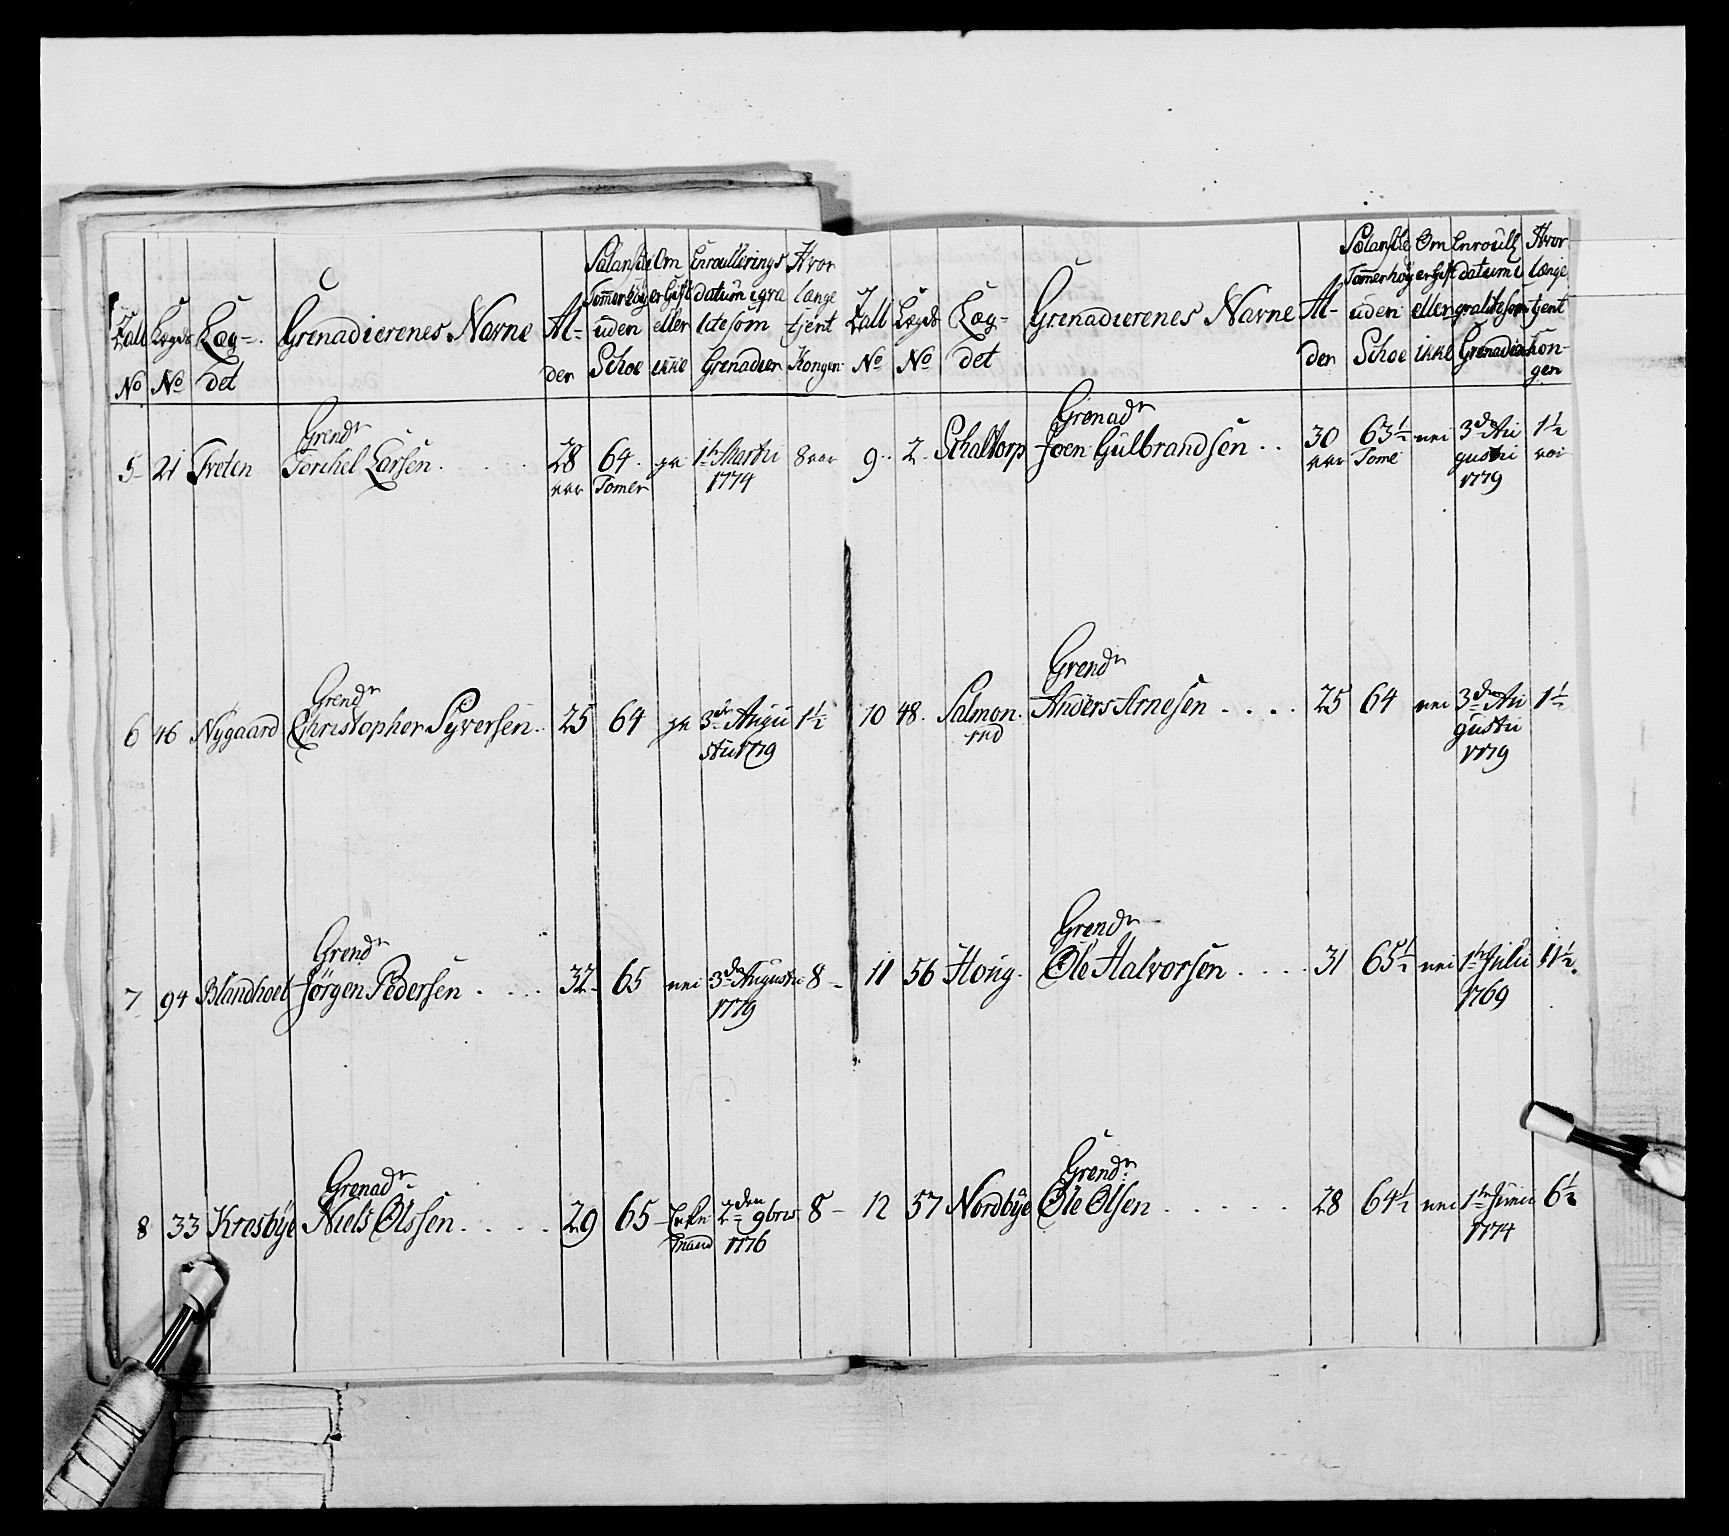 Tall No | Lægds No | Læg= det | Grenadierenes Navne | Al- der | Sålanske Tommerhöy uden Schoe | Om er Gift eller ikke | Enroullerings datum igra litesom Grenadier | Hvor længe tjent Kongen
5 | 21 | Treten | Grendr Torchel Larsen | 28 aar | 64 Tomer | ja | 1te Martii 1774 | 8 aar
6 | 46 | Nÿgaard | Grendr Christopher Syversen | 25 | 64 | ja | 3de Augu stii 1779 | 1½
7 | 94 | Blandhoel | Grendr Jörgen Pedersen | 32 | 65 | nei | 3de Augustii 1779 | 8
8 | 33 | Kresbÿe | Grenadr Niels Olssen | 29 | 65 | Enke mand | 2den 9bris 1776 | 8
Tall No | Lægds No | Læg= det | Grenadierenes Navne | Al- der | Sælanske Tommerhöy uden Schoe | Om er Gift eller ikke | Enroull datum i gralite som Grenadier | Hvor længe tjent kon- gen
9 | 2 | Schaltorp | Grenadr Joen Gulbrandsen | 30 aar | 63½ Tome | nei | 3de Au gustii 1779 | 1½ aar
10 | 48 | Salmon rud | Grendr Anders Arnesen | 25 | 64 | nei | 3de Au gustii 1779 | 1½
11 | 56 | Houg | Grendr Ole Halvorsen | 31 | 65½ | nei | 1te Julii 1769 | 11½
12 | 57 | Nordbÿe | Grendr Ole Olsen | 28 | 64½ | nei | 1te Junii 1774 | 6½